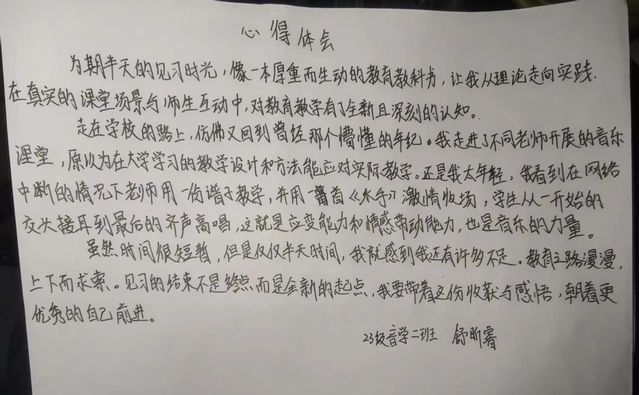 心得体会
为期半天的见习时光，像一本厚重而生动的教育教科书，让我从理论走向实践.
在真实的课堂场景与师生互动中，对教育教学有了全新且深刻的认知。
走在学校的路上，仿佛又回到曾经那个懵懂的年纪。我走进了不同老师开展的音乐
课堂，原以为在大学学习的教学设计和方法能应对实际教学。还是我太年轻，我看到在网络
中断的情况下老师用一份谱子教学，并用一首《水手》激情收场，学生从一开始的
交头接耳到最后的齐声高唱，这就是应变能力和情感带动能力，也是音乐的力量。
虽然时间很短暂，但是仅仅半天时间，我就感到我还有许多不足。教育之路漫漫，
上下而求索。见习的结束不是终点而是全新的起点，我要带着这份收获与感悟，朝着更
优秀的自己前进。
23级音学二班 舒昕睿